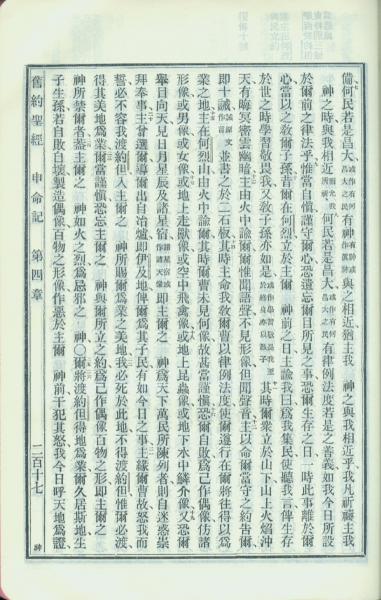 備何民若是昌大或作有何昌大之民有神與之相近猶主我　神之與我相近乎我凡祈禱主我
神之時與我相近何民若是昌大或作有何昌大之民有律例法度若是之善義如我今日所設
於爾前之律法乎惟當自愼謹守爾心恐遺忘爾目所見之事恐爾生存之日一時此事離於爾
心當以之敎爾子孫昔爾在何烈立於主爾　神前之日主諭我曰爲我集民使聽我言俾生存
於世之時學習敬畏我又敎子孫亦如是其時爾衆立於山下山上火焰沖
天有晦冥密雲幽暗主由火中諭爾爾惟聞語聲不見形像但聞聲音主以命爾當守之約告爾
即十誡誡原文作言並書之於二石板其時主命我敎爾曹以律例法度使爾遵行在爾將往得以爲
業之地主在何烈山由火中諭爾其時爾曹未見何像故甚當謹愼恐爾自敗爲己作偶像仿諸
形像或男像或女像或地上走獸像或空中飛禽像或地上昆蟲像或地下水中鱗介像又恐爾
舉目向天見日月星辰及諸星宿諸星宿或作諸天象即主爾之　神爲天下萬民所陳列者則自迷惑崇
拜奉事主曾選爾導爾出自冶爐即伊及地俾爾爲其子民有如今日之事主緣爾曹故怒我而
誓必不容我渡約但入主爾之　神所賜爾爲業之美地我必死於此地不得渡約但惟爾必渡
得其美地爲業爾當謹愼恐忘主爾之　神與爾所立之約爲己作偶像百物之形即主爾之
神所禁爾者蓋主爾之　神如火之烈爲忌邪之　神〇爾將渡約但得地爲業爾久居斯地生
子生孫若自敗自壞製造偶像百物之形像作惡於主爾　神前干犯其怒我今日呼天地爲證
舊約聖經　申命記　第四章　二百十七　神